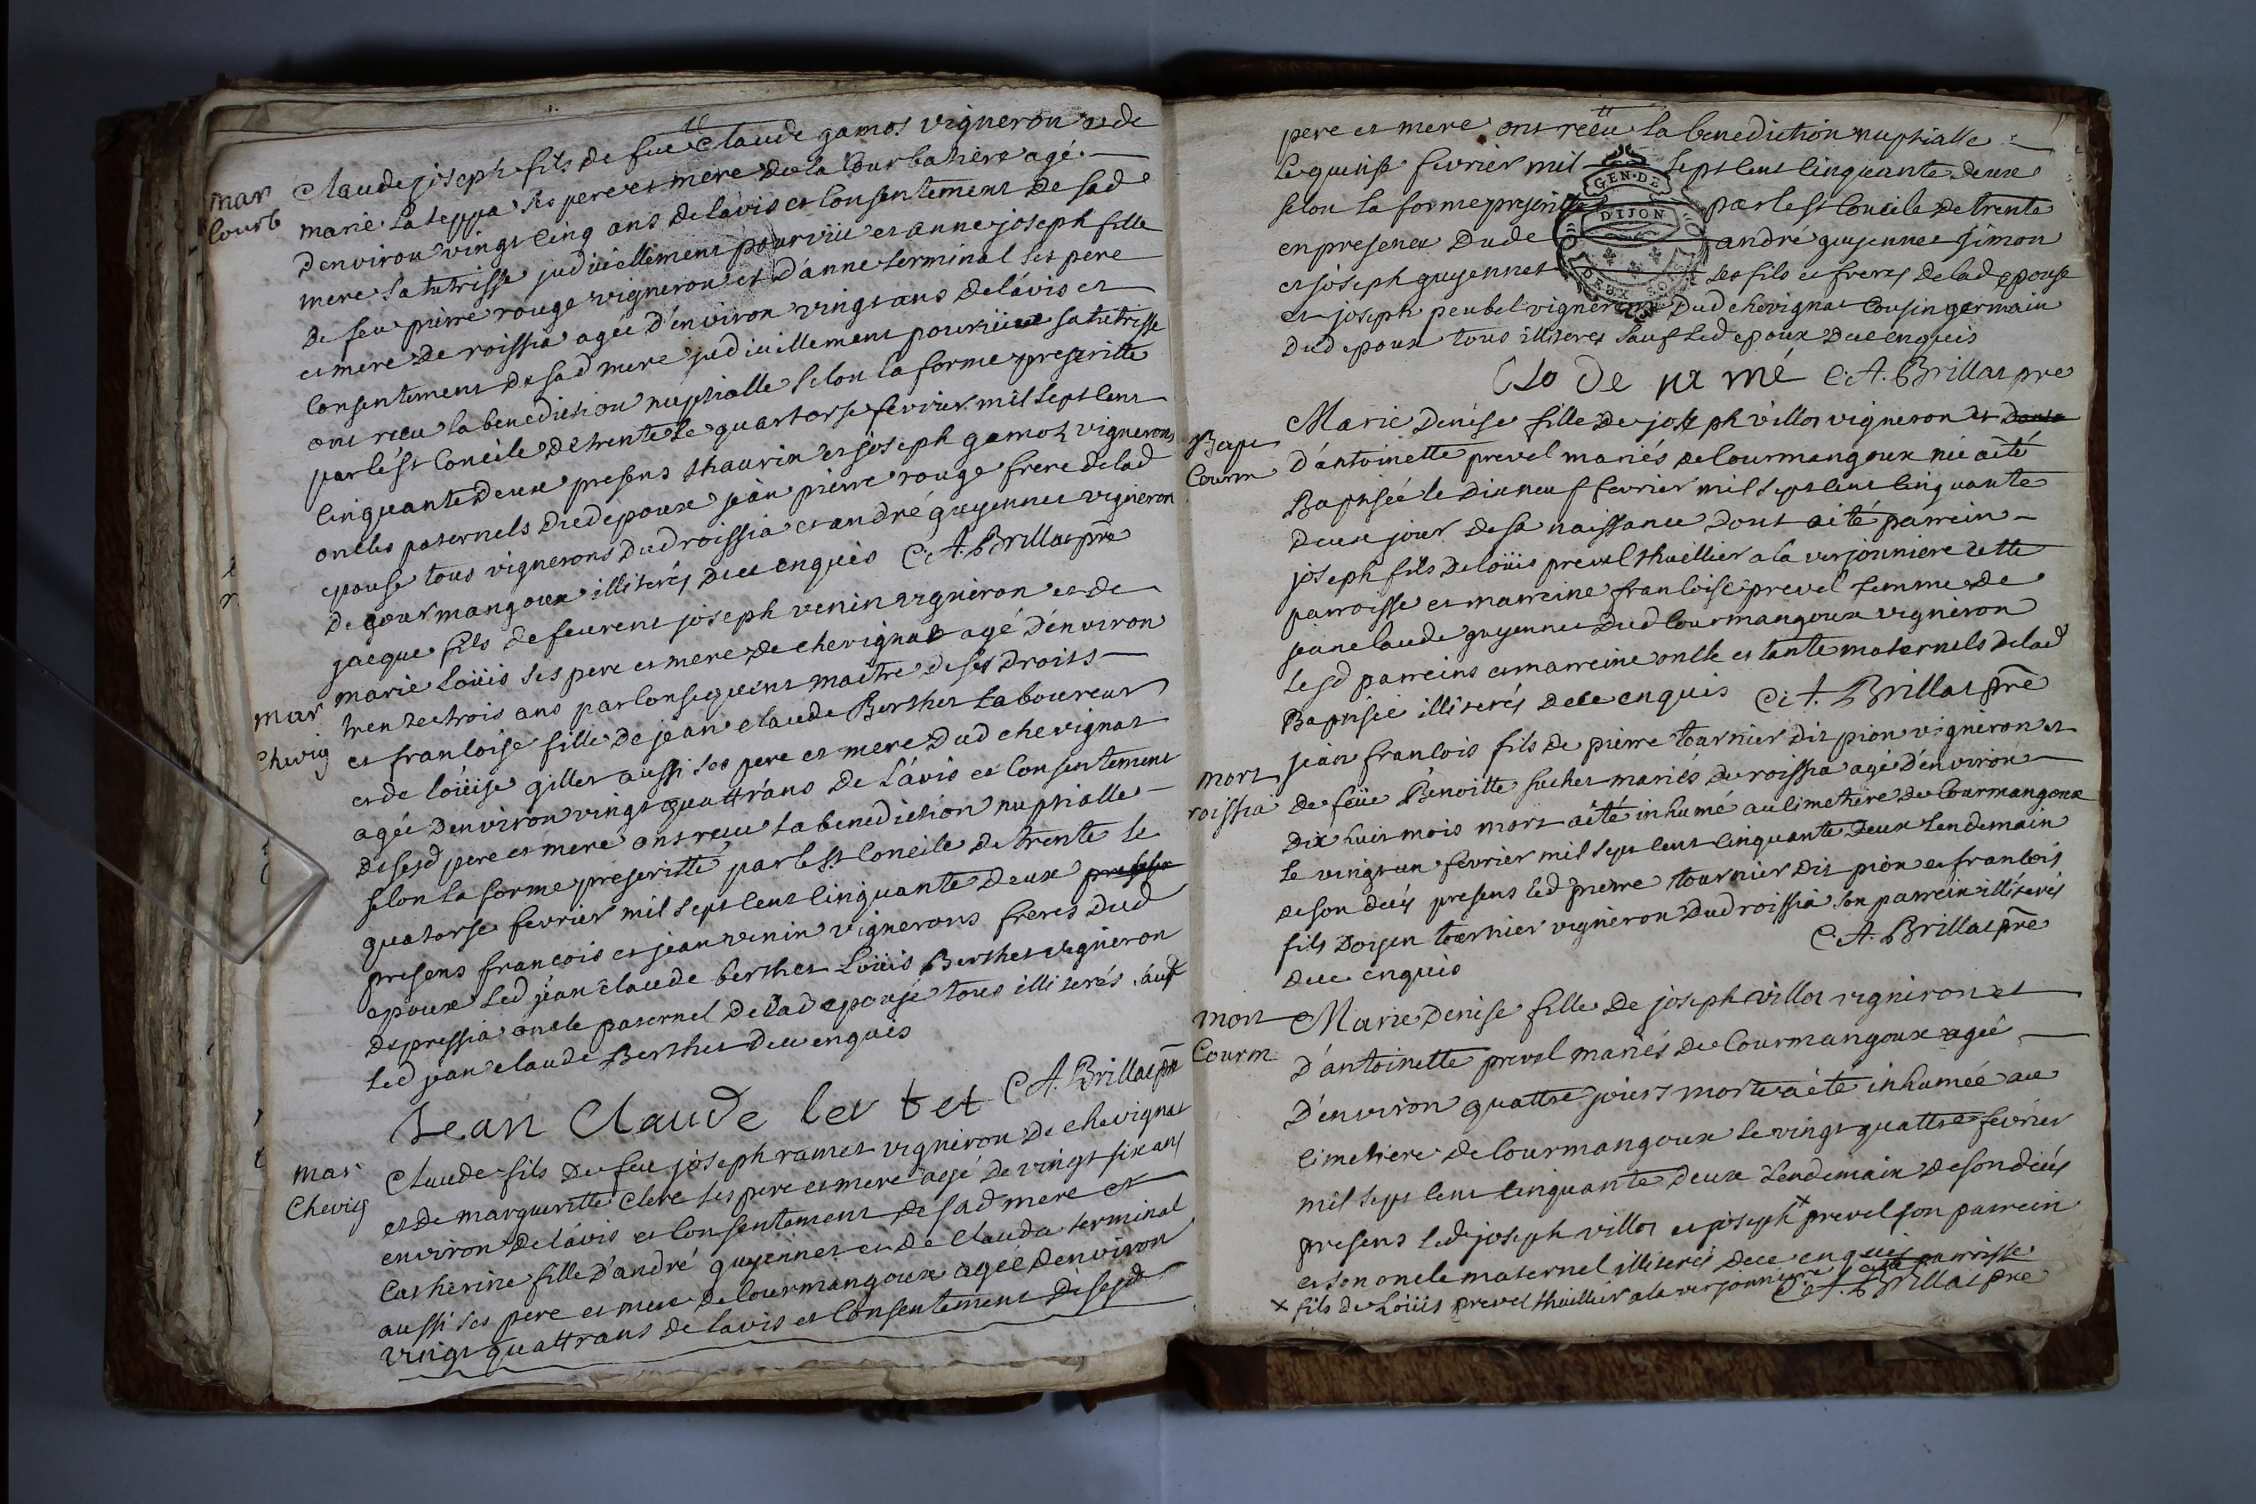 mar
Courb
Claude joseph fils de feu Claude gamos vigneron et de
marie Lateppa ses pere et mere de la Courbatiere agé
d'environ vingt cinq ans de lavis et Consentement de sad
mere sa tutrisse judiciellement pourvüe et anne joseph fille
de feu pierre rouge vigneron et d'anne terminal ses pere
et mere de roissia agee d'environ vingt ans de lávis et
Consentement de sad mere judiciellement pourvüe sa tutrisse
ont recu la benediction nuptialle selon la forme prescritte
par le st Concile de trente le quartorse fevrier mil sept cens
Cinquante deux presens thaurin et joseph gamos vignerons
oncles paternels dud epoux jean pierre rouge frere de lad
epouse tous vignerons dud roissia et andré guyennet vigneron
de Courmangoux illiterés de ce enquis C. A. Brillat pre
mar
chevig
jacque fils de feu rent joseph venin vigneron et de
marie Loüis ses pere et mere de chevignat agé d'environ
trente trois ans par Consequent maitre de ses droits
et francoise fille de jean claude Berthet Laboureur
et de loüise gillet aussi ses pere et mere dud chevignat
agée d'environ vingt quattr'ans de l'ávis et Consentement
de sesd pere et mere ont recu la benediction nuptialle
selon la forme prescritte par le st Concile de trente le
quatorse fevrier mil sept cens cinquante deux
presens francois et jean venin vignerons freres dud
epoux led jean claude berthet Loüis Berthet vigneron
de pressia oncle paternel de lad epouse tous illiterés sauf
led jean claude Berthet de ce enquis
Jean Claude ber tet C. A. Brillat pre
mar
Chevig
Claude fils de feu joseph ramet vigneron de chevignat
et de margueritte Clerc ses pere et mere agé de vingt six ans
environ de lávis et Consentement de sad mere et
Catherine fille d'andré guyennet et de Clauda terminal
aussi ses pere et mere de Courmangoux agée d'environ
vingt quattr'ans de lavis et Consentement de sesd
pere et mere ont recu la benediction nuptialle
le quinse fevrier mil sept cens cinquante deux
selon la forme prescritte par le st Concile de trente
en presence dud andré guyennet simon
et joseph guyennet ses fils et freres de lad epouse
et joseph peubel vigneron dud chevignat Cousin germain
dud epoux tous illiteres sauf led epoux de ce enquis
GEN. DE
DIJON
DEUX SO
Clo de ra mé C. A. Brillat pre
Bapt
Courm
Marie denise fille de joseph villot vigneron et
d'antoinette prevel mariés de Courmangoux née a été
Baptisée le dix neuf fevrier mil sept cens cinquante
deux jour de sa naissance dont a été parrein
joseph fils de loüis prevel thuillier a la verjonniere cette
parroisse et marreine francoise prevel femme de
jean claude guyennet dud Courmangoux vigneron
lesd parreins et marreine oncle et tante maternels de lad
Baptisée illiterés de ce enquis C. A. Brillat pre
mort
roissia
jean francois fils de pierre tournier dit pion vigneron et
de feüe Benoitte suchet mariés de roissia agé d'environ
dix huit mois mort a été inhumé au cimetiere de Courmangoux
le vingt un fevrier mil sept cens cinquante deux lendemain
de son decés presens led pierre tournier dit pion et francois
fils d'oyen tournier vigneron dud roissia son parrein illiterés
de ce enquis C. A. Brillat pre
mort
Courm
Marie denise fille de joseph villot vigneron et
d'antoinette prevel mariés de Courmangoux agée
d'environ quattre jours morte a été inhumée au
cimetiere de Courmangoux le vingt quattre fevrier
mil sept cens cinquante deux lendemain de son decés
presens led joseph villot et joseph × prevel son parrein
et son oncle maternel illiterés de ce enquis
× fils de Loüis prevel thuillier a la verjonniere cette parroisse
C. A. Brillat pre